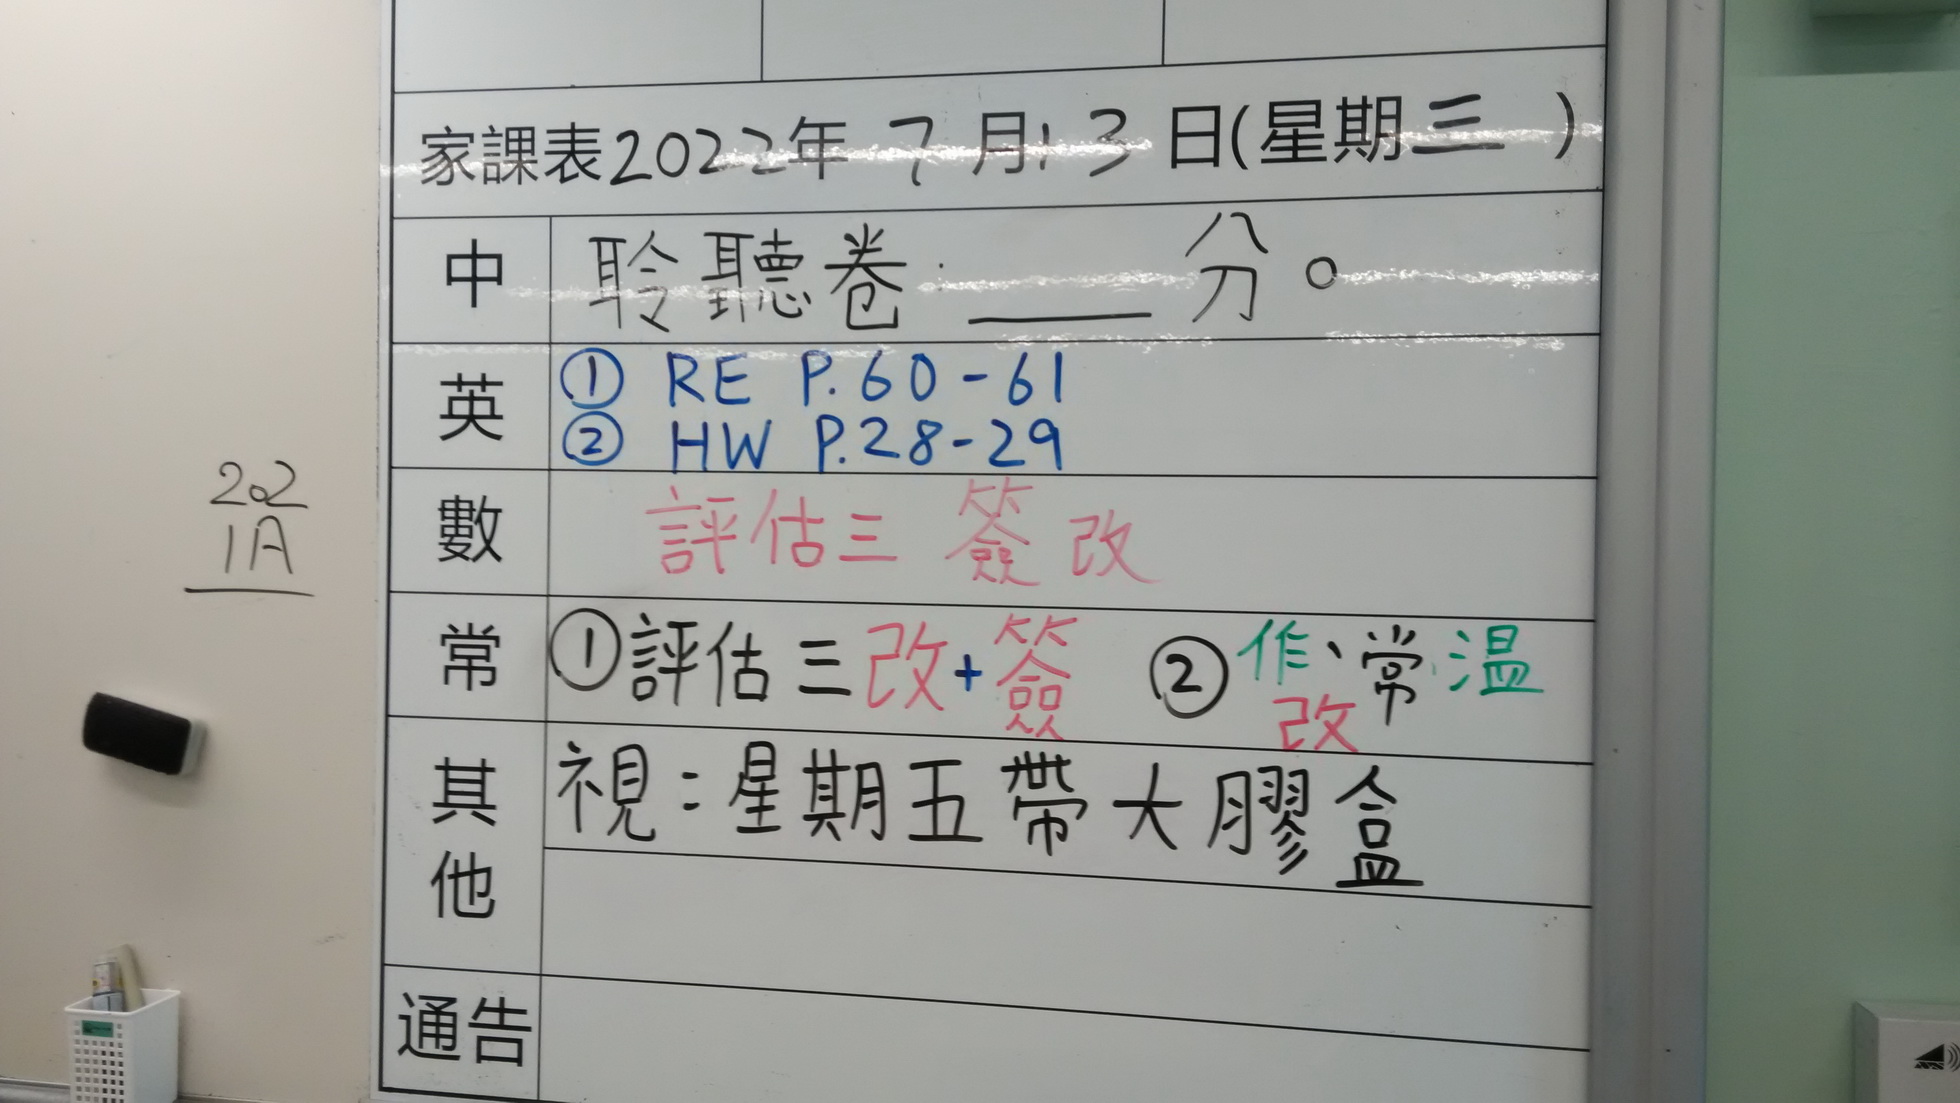 家課表2022年7月13日(星期三)
中 聆聽卷:____分。
英 ① RE P.60-61
② HW P.28-29
數 評估三 簽改
常 ①評估三改+簽 ②作、常溫
改
其他 視:星期五帶大膠盒
通告
202
1A